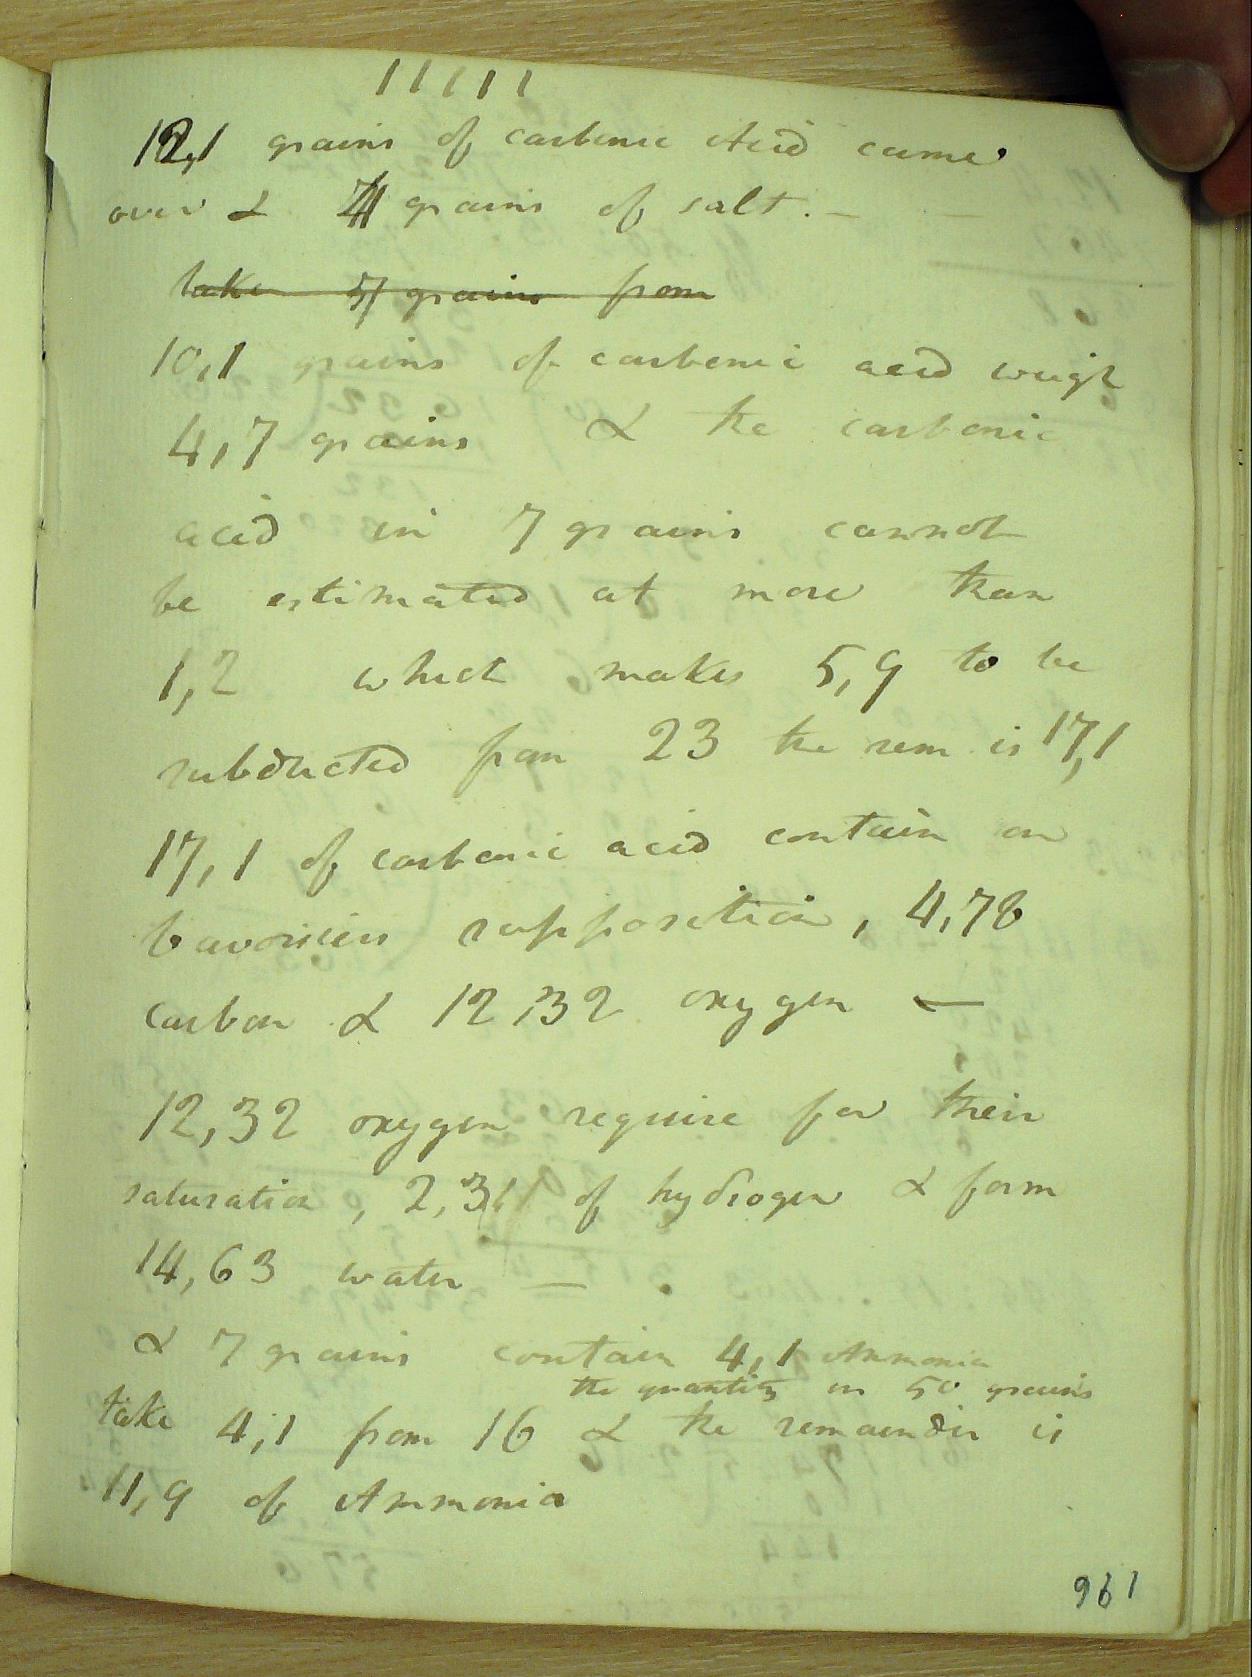 11111
12,1 grains of carbonic Acid came
over & 7 grains of salt. —
take 7 grains from
10,1 grains of carbonic acid weigh
4,7 grains & the carbonic
acid in 7 grains cannot
be estimated at more than
1,2 which makes 5,9 to be
subducted from 23 the rem is 17,1
17,1 of carbonic acid contain on
Lavoisiers supposition, 4,78
carbon & 12,32 oxygen —
12,32 oxygen require for their
saturation, 2,31 of hydrogen & form
14,63 water —
& 7 grains contain 4,1 Ammonia
the quantity in 50 grains
take 4,1 from 16 & the remainder is
11,9 of Ammonia
961